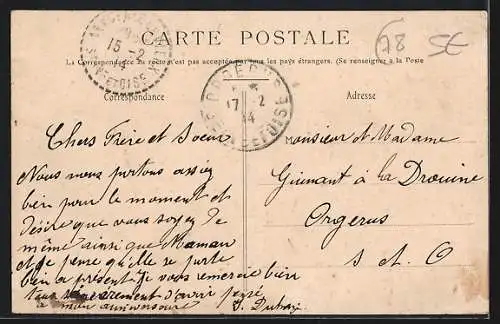 CARTE POSTALE
78
SE
La Correspondance au recto n'est pas acceptée par tous les pays étrangers. (Se renseigner à la Poste
15 -2
14
ET OISE
ORGERUS
17 -2
14
SEINE ET OISE
Correspondance
Adresse
Chers Frère et Soeur
Nous nous portons assez
bien pour le moment et
désire que vous soyez de
même ainsi que Maman
et je pense qu'elle se porte
bien a présent Je vous remercie bien
tous sincèrement d'avoir pensé
a mon anniversaire
Monsieur et Madame
à la
Orgerus
S et O